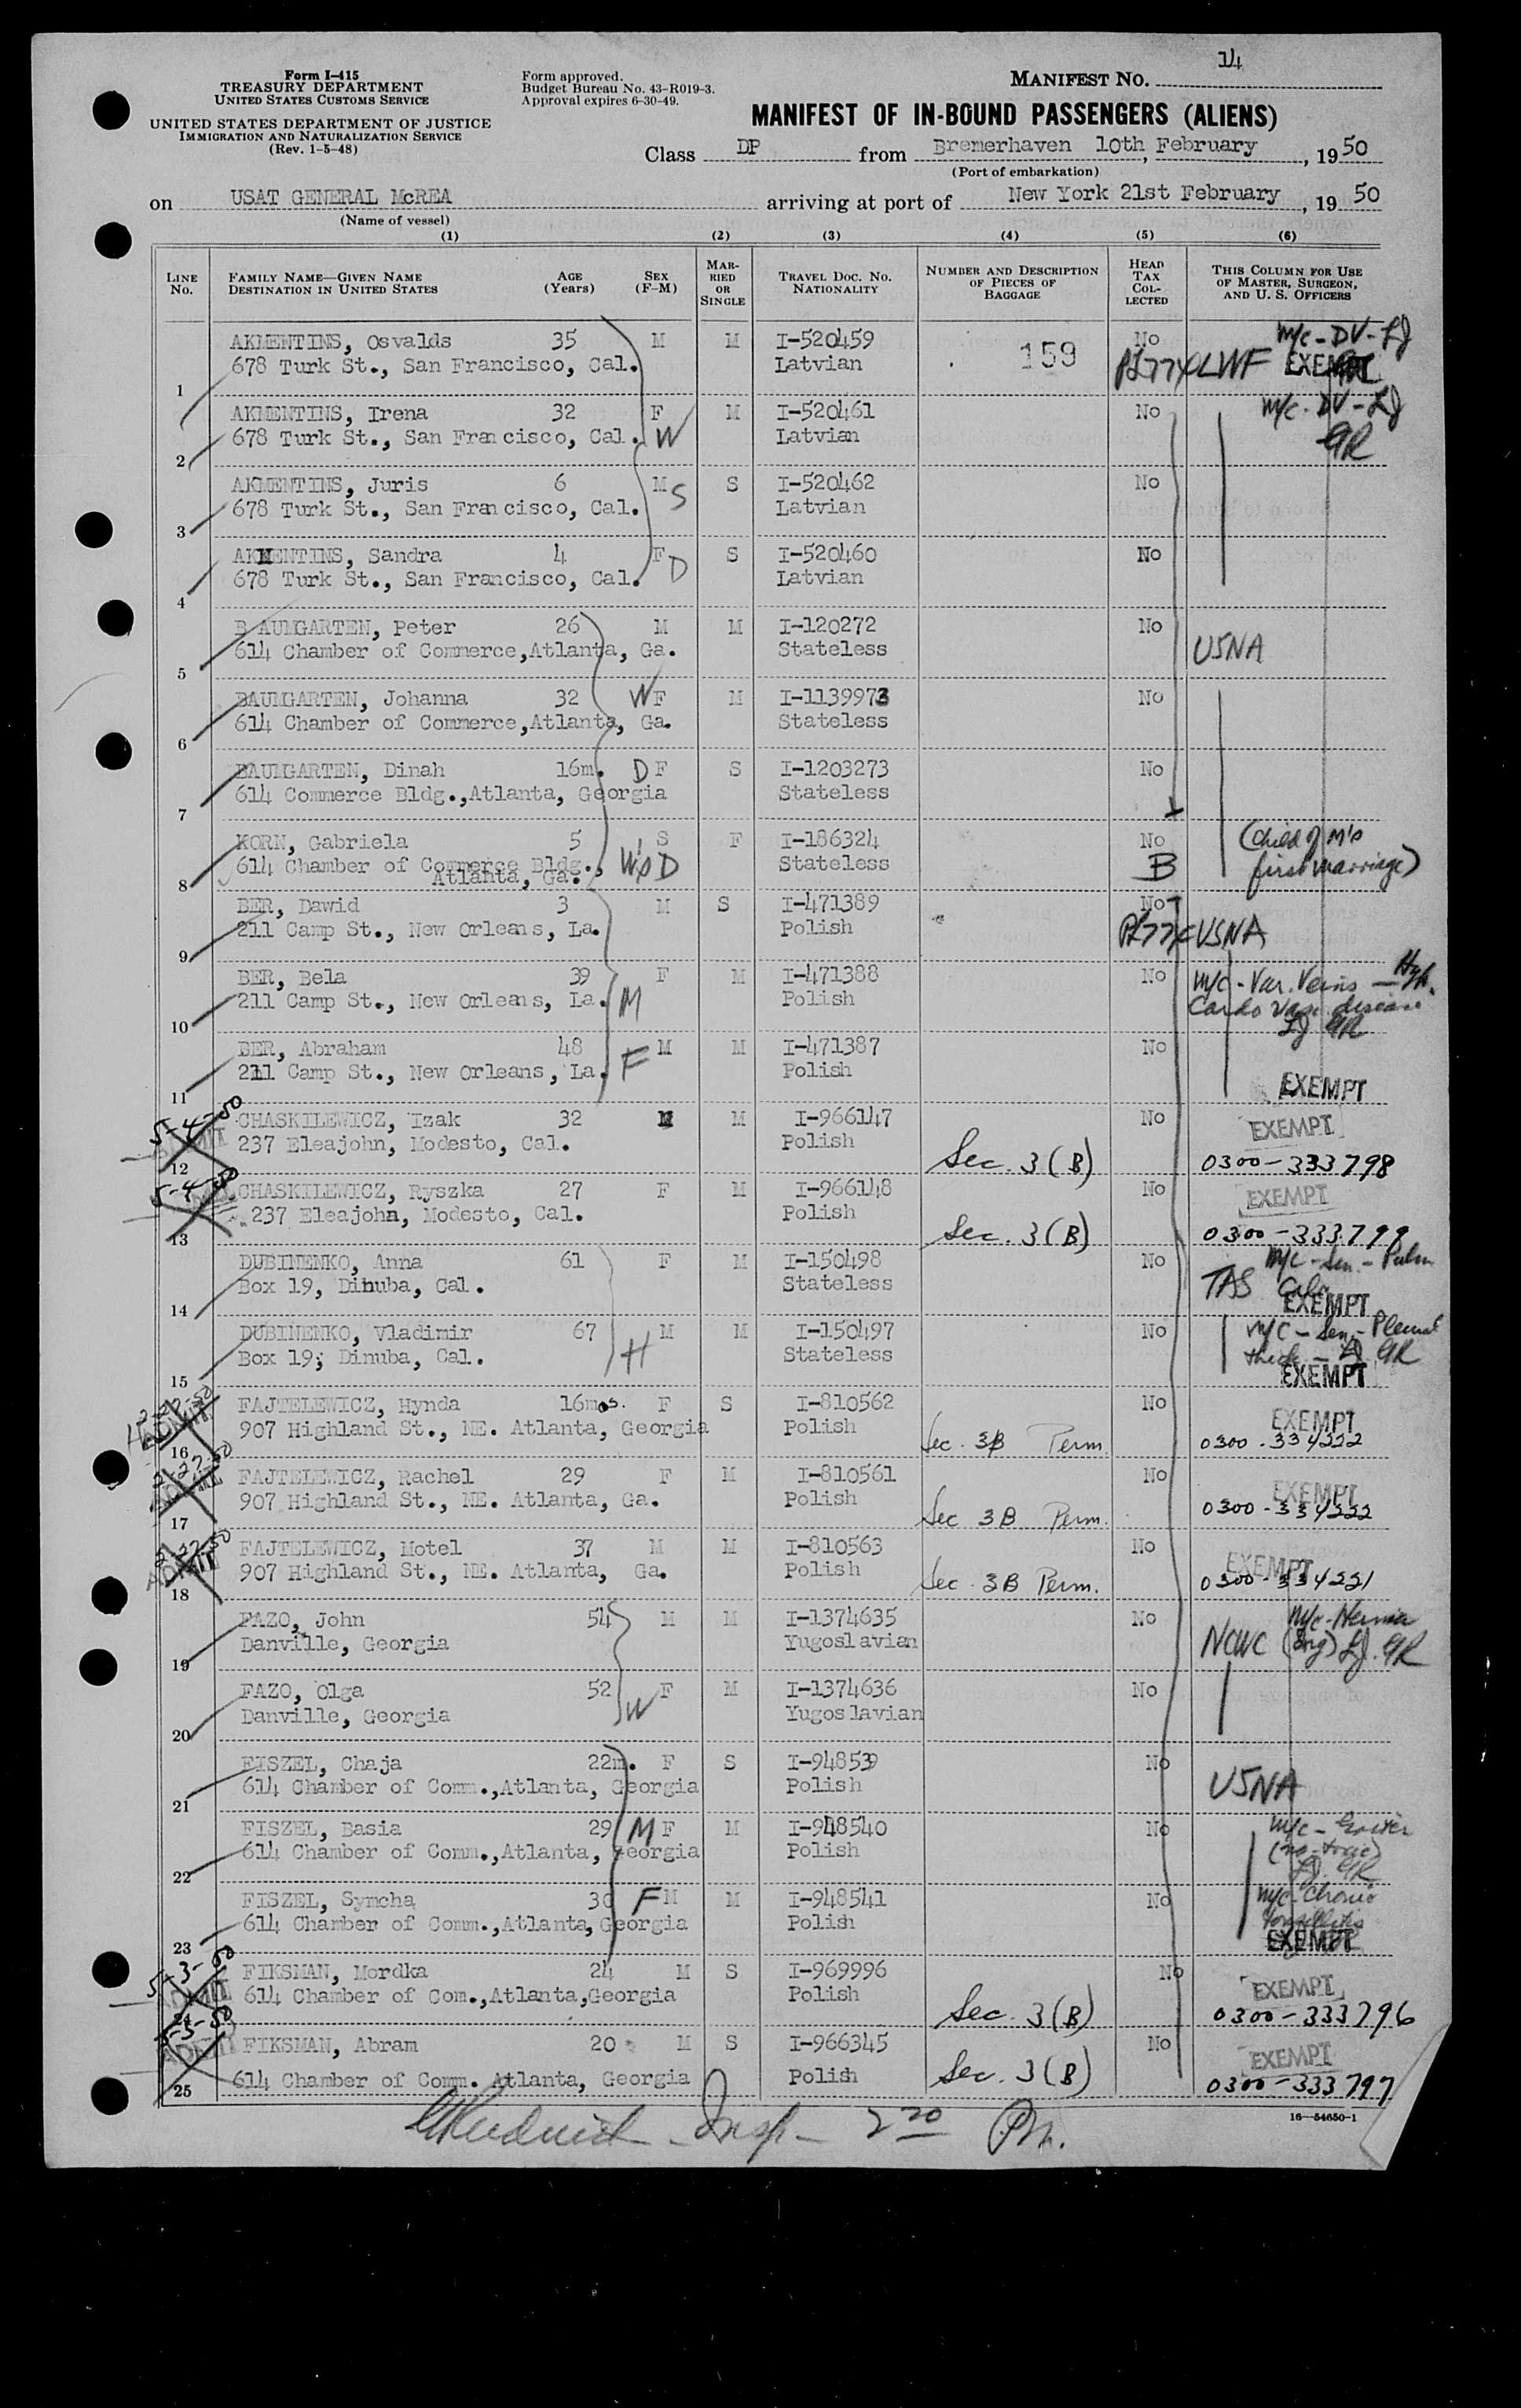 14
Form I-415
TREASURY DEPARTMENT
UNITED STATES CUSTOMS SERVICE
UNITED STATES DEPARTMENT OF JUSTICE
IMMIGRATION AND NATURALIZATION SERVICE
(Rev. 1-5-48)
Form approved.
Budget Bureau No. 43-R019-3.
Approval expires 6-30-49.
MANIFEST NO.
MANIFEST OF IN-BOUND PASSENGERS (ALIENS)
Class DP from Bremerhaven 10th, February, 1950
(Port of embarkation)
on USAT GENERAL McREA arriving at port of New York 21st February, 1950
(Name of vessel)
(1) (2) (3) (4) (5) (6)
LINE No. FAMILY NAME—GIVEN NAME DESTINATION IN UNITED STATES AGE (Years) SEX (F-M) MARRIED OR SINGLE TRAVEL DOC. No. NATIONALITY NUMBER AND DESCRIPTION OF PIECES OF BAGGAGE HEAD TAX COLLECTED THIS COLUMN FOR USE OF MASTER, SURGEON, AND U. S. OFFICERS
AKMENTINS, Osvalds 35 M M I-520459 159 No M/c-DV-LJ
1 678 Turk St., San Francisco, Cal. Latvian LWF EXEMPT
AKMENTINS, Irena 32 F M I-520461 No M/c. DV-LJ
2 678 Turk St., San Francisco, Cal. W Latvian GR
AKMENTINS, Juris 6 M S S I-520462 No
3 678 Turk St., San Francisco, Cal. Latvian
AKMENTINS, Sandra 4 F D S I-520460 No
4 678 Turk St., San Francisco, Cal. Latvian
BAUMGARTEN, Peter 26 M M I-120272 No USNA
5 614 Chamber of Commerce, Atlanta, Ga. Stateless
BAUMGARTEN, Johanna 32 W F M I-1139973 No
6 614 Chamber of Commerce, Atlanta, Ga. Stateless
BAUMGARTEN, Dinah 16m. D F S I-1203273 No
7 614 Commerce Bldg., Atlanta, Georgia Stateless
KORN, Gabriela 5 S F I-186324 No (Child of M's
8 614 Chamber of Commerce Bldg., W's D Stateless B first marriage)
Atlanta, Ga.
BER, Dawid 3 M S I-471389 No
9 211 Camp St., New Orleans, La. Polish USNA
BER, Bela 39 F M I-471388 No M/c-Var. Veins - Hyp.
10 211 Camp St., New Orleans, La. M Polish Cardo Vasc. disease LJ GR
BER, Abraham 48 M M I-471387 No
11 211 Camp St., New Orleans, La. F Polish EXEMPT
5-4-50 CHASKILEWICZ, Izak 32 M M I-966147 No EXEMPT
12 237 Eleajohn, Modesto, Cal. Polish Sec. 3(B) 0300-333798
5-4-50 CHASKILEWICZ, Ryszka 27 F M I-966148 No EXEMPT
13 237 Eleajohn, Modesto, Cal. Polish Sec. 3(B) 0300-333799
DUBINENKO, Anna 61 F M I-150498 No M/c-Sen.-Pulm
14 Box 19, Dinuba, Cal. Stateless TAS EXEMPT
DUBINENKO, Vladimir 67 M M I-150497 No M/C-Sen.-Pleural
15 Box 19; Dinuba, Cal. H Stateless thick-LJ GR EXEMPT
2-27-50 ADMIT FAJTELEWICZ, Hynda 16mos. F S I-810562 No EXEMPT
16 907 Highland St., NE. Atlanta, Georgia Polish Sec. 3B Perm. 0300-334222
2-27-50 ADMIT FAJTELEWICZ, Rachel 29 F M I-810561 No EXEMPT
17 907 Highland St., NE. Atlanta, Ga. Polish Sec 3B Perm. 0300-334222
2-27-50 ADMIT FAJTELEWICZ, Motel 37 M M I-810563 No EXEMPT
18 907 Highland St., NE. Atlanta, Ga. Polish Sec. 3B Perm. 0300-334221
FAZO, John 54 M M I-1374635 No M/c-Hernia
19 Danville, Georgia Yugoslavian NCWC (Ing) LJ. GR
FAZO, Olga 52 F M I-1374636 No
20 Danville, Georgia W Yugoslavian
FISZEL, Chaja 22m. F S I-948539 No
21 614 Chamber of Comm., Atlanta, Georgia Polish USNA
FISZEL, Basia 29 M F M I-948540 No M/c-Goiter
22 614 Chamber of Comm., Atlanta, Georgia Polish (no-toxic) LJ. GR
FISZEL, Symcha 30 F M M I-948541 No M/c-Chronic
23 614 Chamber of Comm., Atlanta, Georgia Polish tonsillitis EXEMPT
5-3-50 ADMIT FIKSMAN, Mordka 24 M S I-969996 No EXEMPT
24 614 Chamber of Com., Atlanta, Georgia Polish Sec. 3(B) 0300-333796
5-3-50 ADMIT FIKSMAN, Abram 20 M S I-966345 No EXEMPT
25 614 Chamber of Comm. Atlanta, Georgia Polish Sec. 3(B) 0300-333797
16—54650-1
Insp - 2 20 Pm.